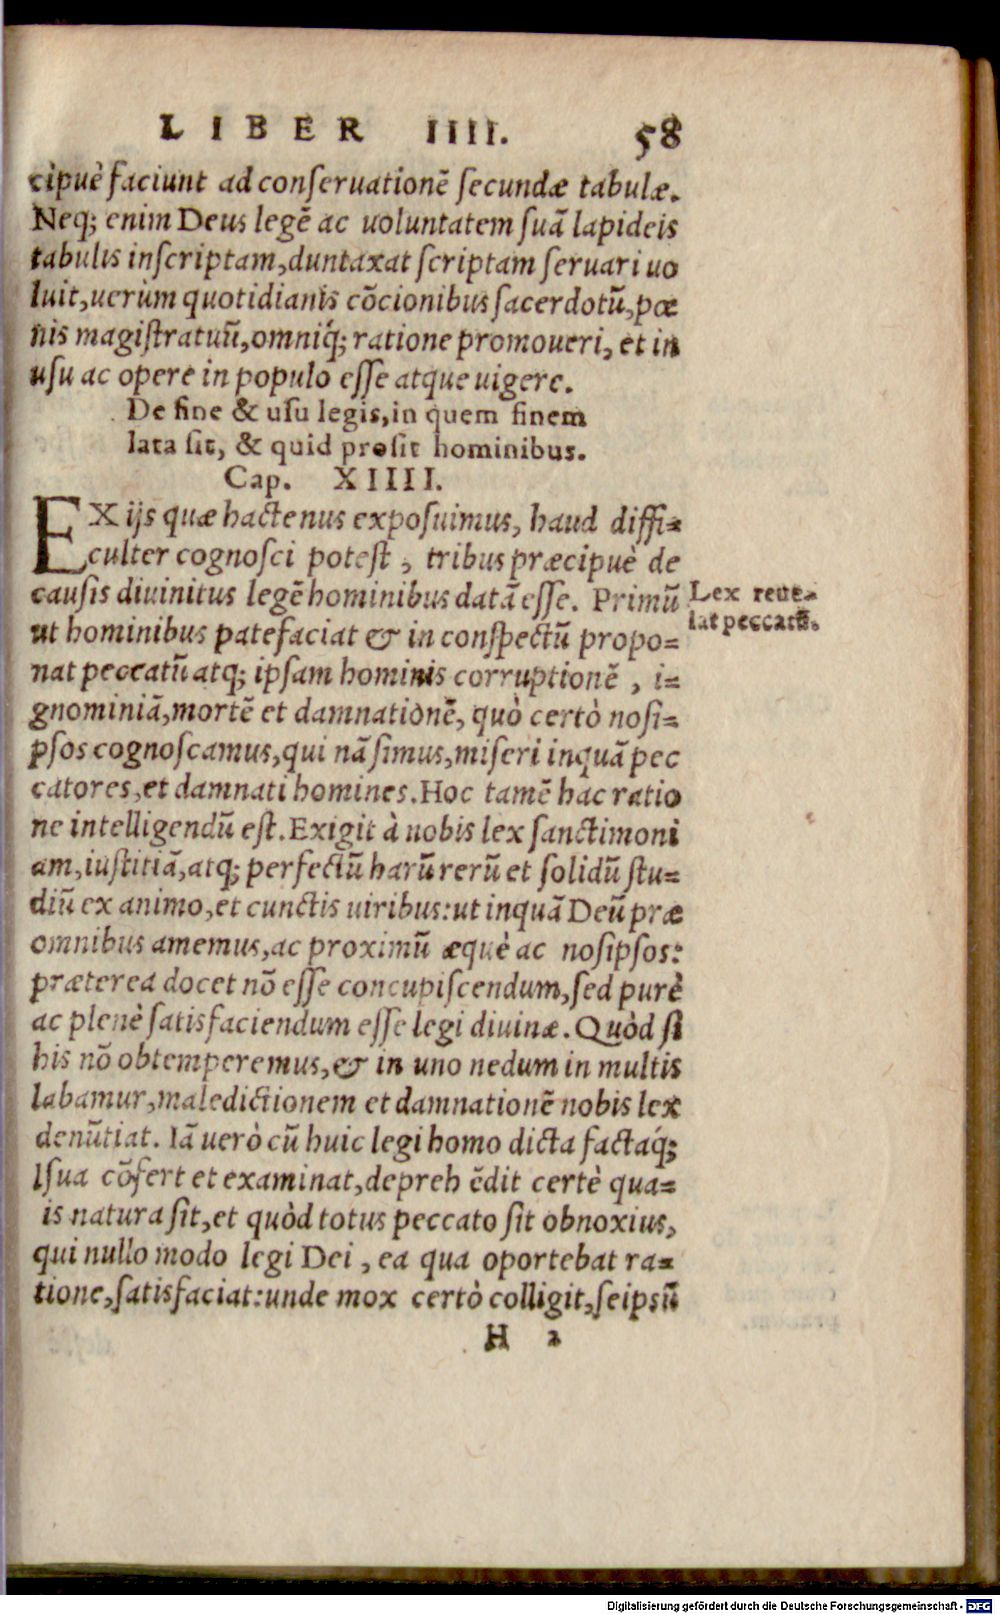 LIBER IIII. 58
cipuè faciunt ad conſeruationē ſecundæ tabulæ.
Neq; enim Deus legē ac uoluntatem ſuā lapideis
tabulis inſcriptam, duntaxat ſcriptam ſeruari uo
luit, uerùm quotidianis cōcionibus ſacerdotū, pœ
nis magiſtratuū, omniq́; ratione promoueri, et in
uſu ac opere in populo eſſe atque uigere.
De fine & uſu legis, in quem finem
lata ſit, & quid proſit hominibus.
Cap. XIIII.
EX ijs quæ hactenus expoſuimus, haud diffi=
culter cognoſci poteſt, tribus præcipuè de
cauſis diuinitus legē hominibus datā eſſe. Primū
Lex reue=
lat peccatū.
ut hominibus patefaciat & in conſpectū propo=
nat peccatū atq; ipſam hominis corruptionē, i=
gnominiā, mortē et damnationē, quò certò noſi=
pſos cognoſcamus, qui nā ſimus, miſeri inquā pec
catores, et damnati homines. Hoc tamē hac ratio
ne intelligendū eſt. Exigit à nobis lex ſanctimoni
am, iuſtitiā, atq; perfectū harū rerū et ſolidū ſtu=
diū ex animo, et cunctis uiribus: ut inquā Deū præ
omnibus amemus, ac proximū æquè ac noſipſos:
præterea docet nō eſſe concupiſcendum, ſed purè
ac plenè ſatisfaciendum eſſe legi diuinæ. Quòd ſi
his nō obtemperemus, & in uno nedum in multis
labamur, maledictionem et damnationē nobis lex
denūtiat. Iā uerò cū huic legi homo dicta factaq́;
lſua cōfert et examinat, depreh ēdit certè qua=
is natura ſit, et quòd totus peccato ſit obnoxius,
qui nullo modo legi Dei, ea qua oportebat ra=
tione, ſatisfaciat: unde mox certò colligit, ſeipſū
H 2
Digitalisierung gefördert durch die Deutsche Forschungsgemeinschaft - DFG